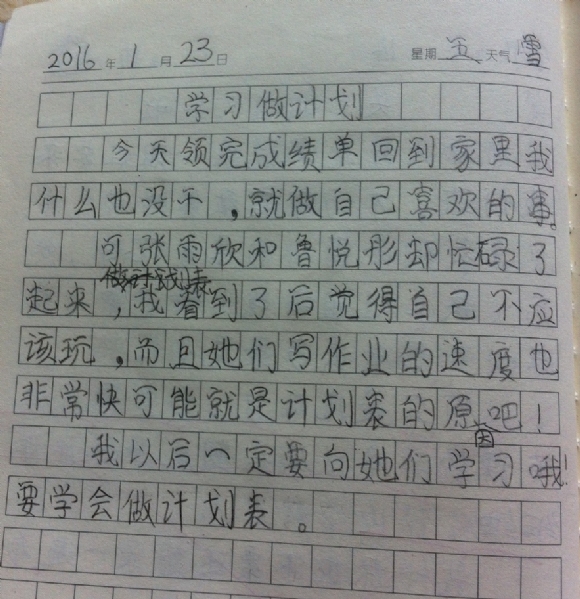 2016年1月23日 星期五 天气雪
学习做计划
今天领完成绩单回到家里我
什么也没干，就做自己喜欢的事。
可张雨欣和鲁悦彤却忙碌了
做计划表
起来，我看到了后觉得自己不应
该玩，而且她们写作业的速度也
非常快可能就是计划表的原因吧！
我以后一定要向她们学习哦！
要学会做计划表。